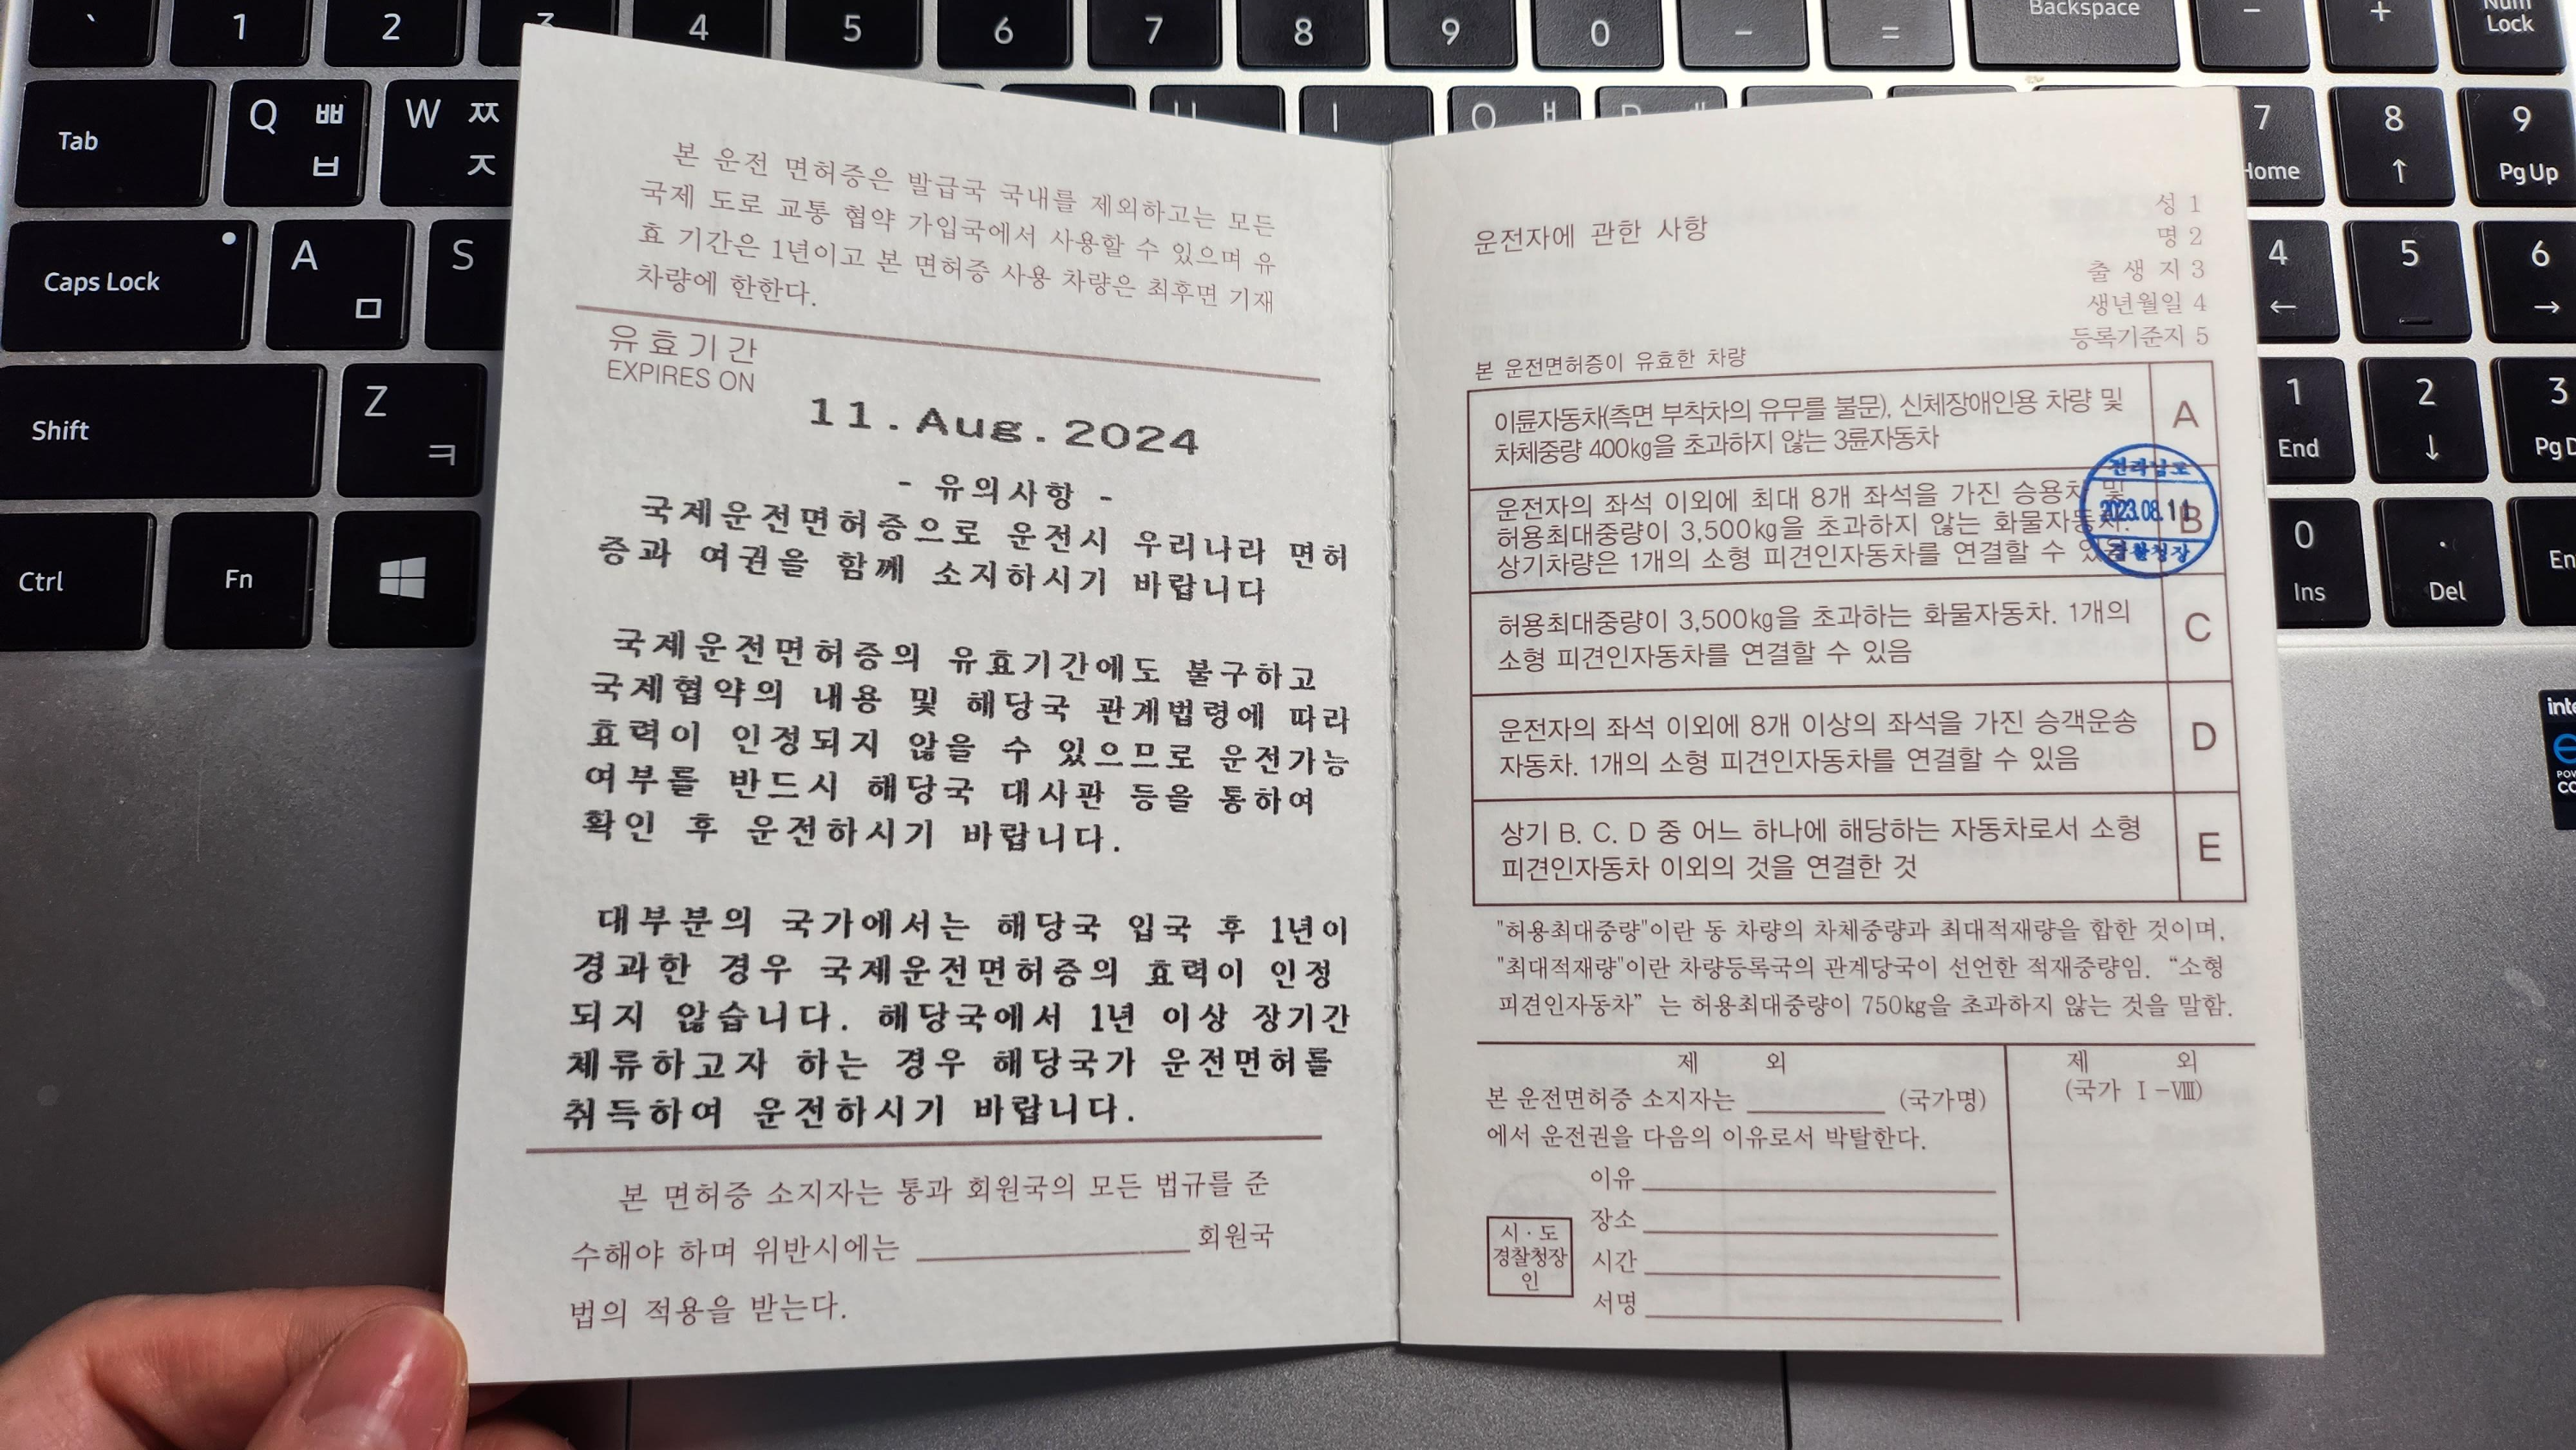 본 운전 면허증은 발급국 국내를 제외하고는 모든
국제 도로 교통 협약 가입국에서 사용할 수 있으며 유
효 기간은 1년이고 본 면허증 사용 차량은 최후면 기재
차량에 한한다.
유효기간
EXPIRES ON
11.Aug.2024
- 유의사항 -
국제운전면허증으로 운전시 우리나라 면허
증과 여권을 함께 소지하시기 바랍니다
국제운전면허증의 유효기간에도 불구하고
국제협약의 내용 및 해당국 관계법령에 따라
효력이 인정되지 않을 수 있으므로 운전가능
여부를 반드시 해당국 대사관 등을 통하여
확인 후 운전하시기 바랍니다.
대부분의 국가에서는 해당국 입국 후 1년이
경과한 경우 국제운전면허증의 효력이 인정
되지 않습니다. 해당국에서 1년 이상 장기간
체류하고자 하는 경우 해당국가 운전면허를
취득하여 운전하시기 바랍니다.
본 면허증 소지자는 통과 회원국의 모든 법규를 준
수해야 하며 위반시에는 회원국
법의 적용을 받는다.
운전자에 관한 사항
성 1
명 2
출 생 지 3
생년월일 4
등록기준지 5
본 운전면허증이 유효한 차량
이륜자동차(측면 부착차의 유무를 불문), 신체장애인용 차량 및
차체중량 400kg을 초과하지 않는 3륜자동차
A
운전자의 좌석 이외에 최대 8개 좌석을 가진 승용차 및
허용최대중량이 3,500kg을 초과하지 않는 화물자동차.
상기차량은 1개의 소형 피견인자동차를 연결할 수 있음
B
전라남도
2023.08.11
경찰청장
허용최대중량이 3,500kg을 초과하는 화물자동차. 1개의
소형 피견인자동차를 연결할 수 있음
C
운전자의 좌석 이외에 8개 이상의 좌석을 가진 승객운송
자동차. 1개의 소형 피견인자동차를 연결할 수 있음
D
상기 B. C. D 중 어느 하나에 해당하는 자동차로서 소형
피견인자동차 이외의 것을 연결한 것
E
"허용최대중량"이란 동 차량의 차체중량과 최대적재량을 합한 것이며,
"최대적재량"이란 차량등록국의 관계당국이 선언한 적재중량임. “소형
피견인자동차” 는 허용최대중량이 750kg을 초과하지 않는 것을 말함.
제 외
본 운전면허증 소지자는 (국가명)
에서 운전권을 다음의 이유로서 박탈한다.
이유
장소
시간
서명
시·도
경찰청장
인
제 외
(국가 Ⅰ-Ⅷ)
` 1 2 3 4 5 6 7 8 9 0 - = Backspace - + Num Lock
Tab Q ㅃ ㅂ W ㅉ ㅈ 7 Home 8 ↑ 9 Pg Up
Caps Lock A ㅁ S 4 ← 5 6 →
Shift Z ㅋ 1 End 2 ↓ 3
Ctrl Fn 0 Ins . Del